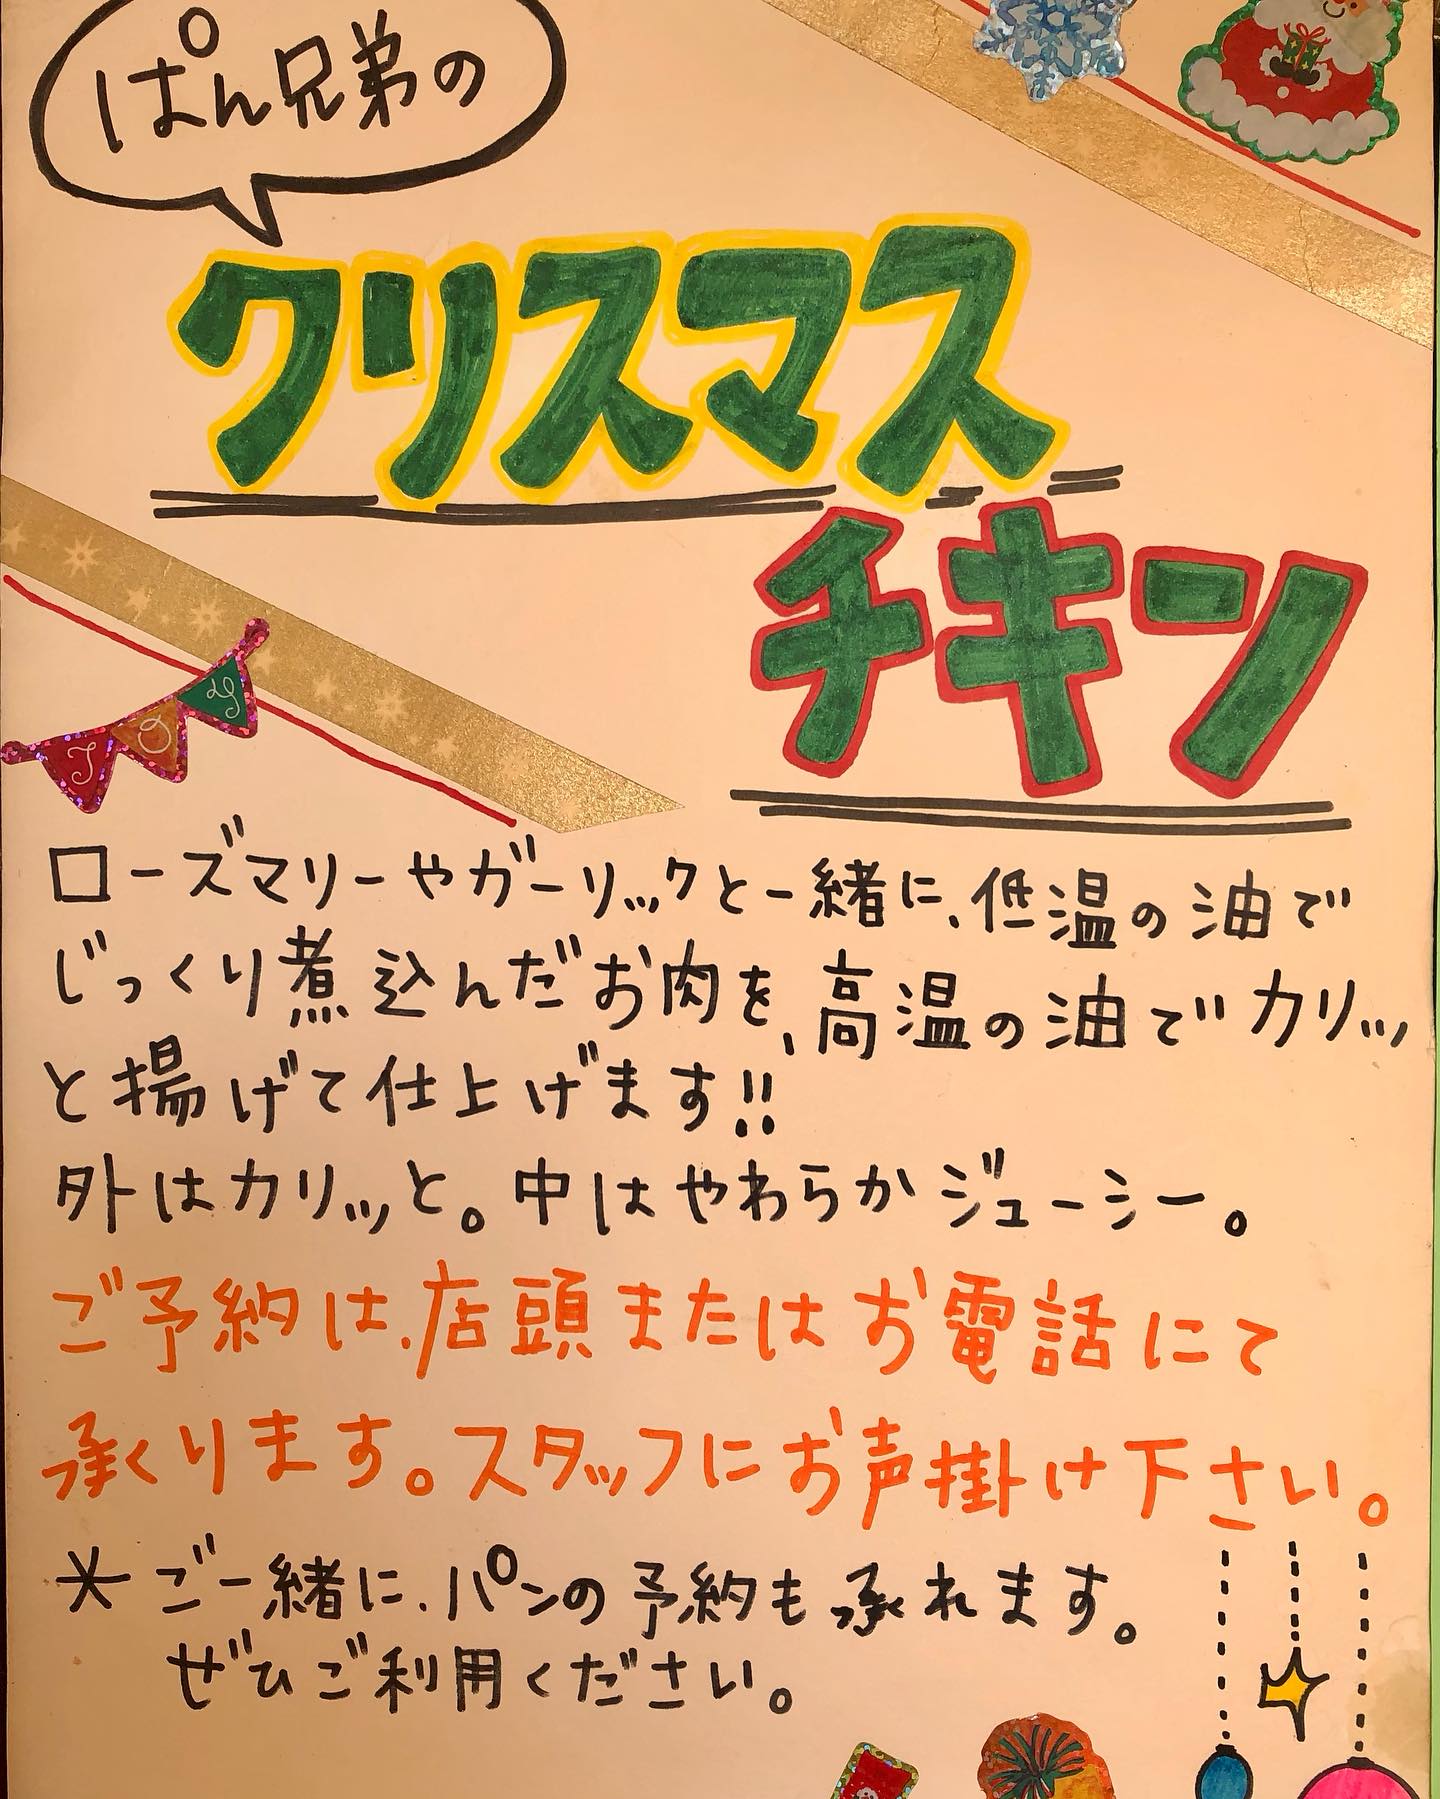 ぱん兄弟の
クリスマス
チキン
JOY
ローズマリーやガーリックと一緒に、低温の油で
じっくり煮込んだお肉を、高温の油でカリッ
と揚げて仕上げます!!
外はカリッと。中はやわらかジューシー。
ご予約は、店頭またはお電話にて
承くります。スタッフにお声掛け下さい。
*ご一緒に、パンの予約も承れます。
ぜひご利用ください。